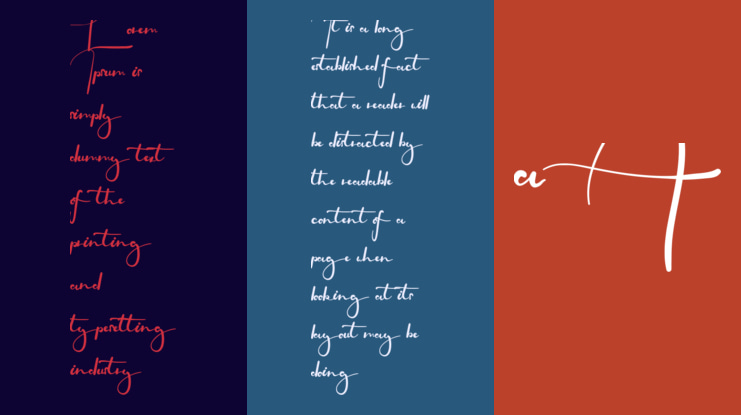 Lorem
Ipsum is
simply
dummy text
of the
printing
and
typesetting
industry
It is a long
established fact
that a reader will
be distracted by
the readable
content of a
page when
looking at its
layout may be
doing
a